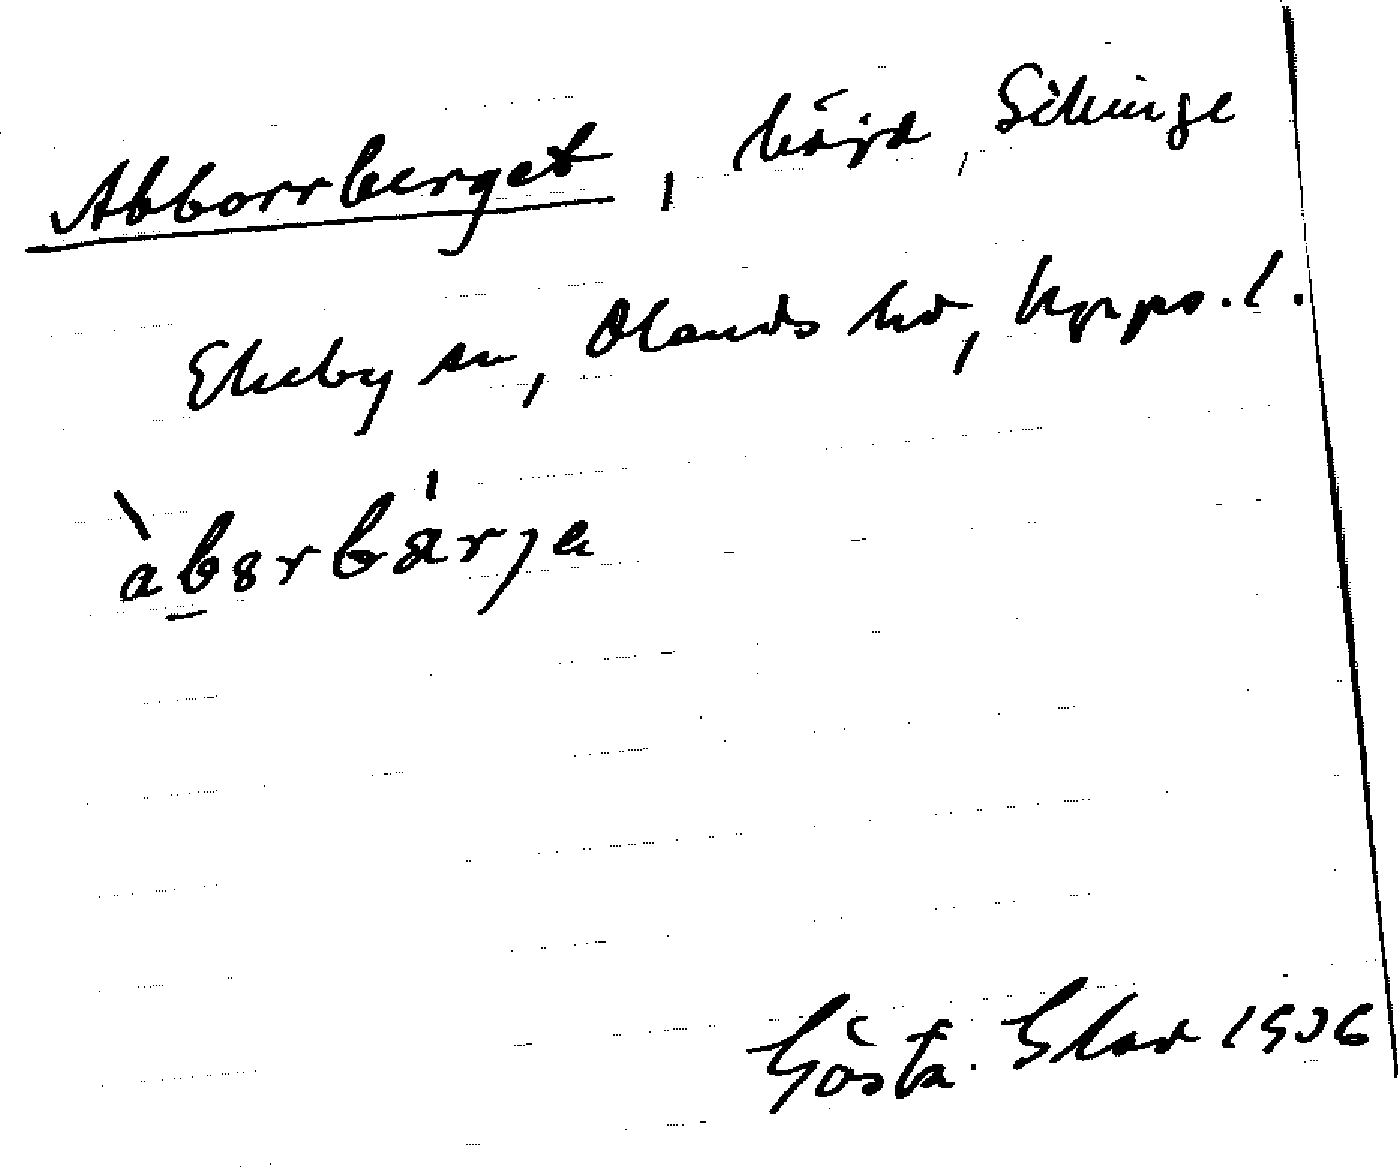 Abborrberget, höjd, Sikinge
Ekeby sn, Olands hd, Upps. l.
àbərbä̀rje
Gösta. Glad 1936